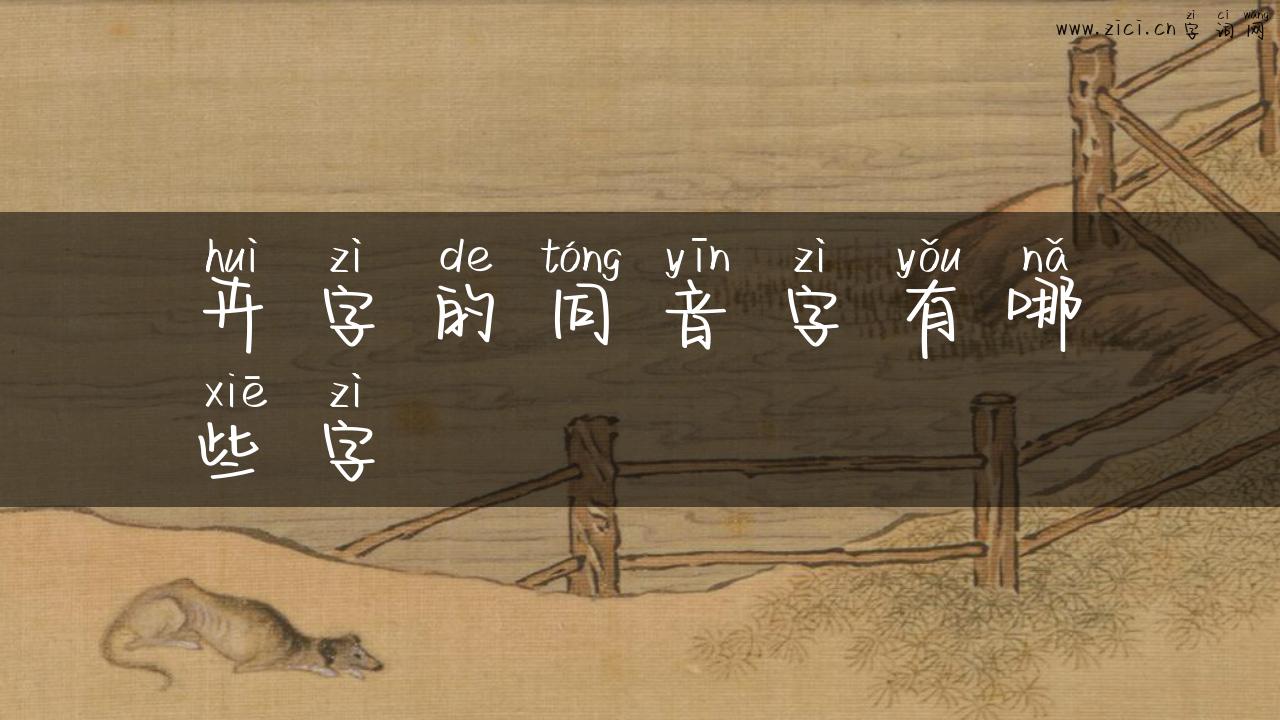 www.zici.cn
zì cí wǎng
字词网
huì zì de tóng yīn zì yǒu nǎ
卉字的同音字有哪
xiē zì
些字